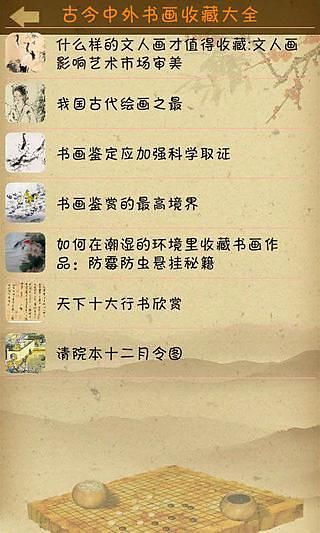 古今中外书画收藏大全
什么样的文人画才值得收藏:文人画
影响艺术市场审美
我国古代绘画之最
书画鉴定应加强科学取证
书画鉴赏的最高境界
如何在潮湿的环境里收藏书画作
品：防霉防虫悬挂秘籍
天下十大行书欣赏
清院本十二月令图